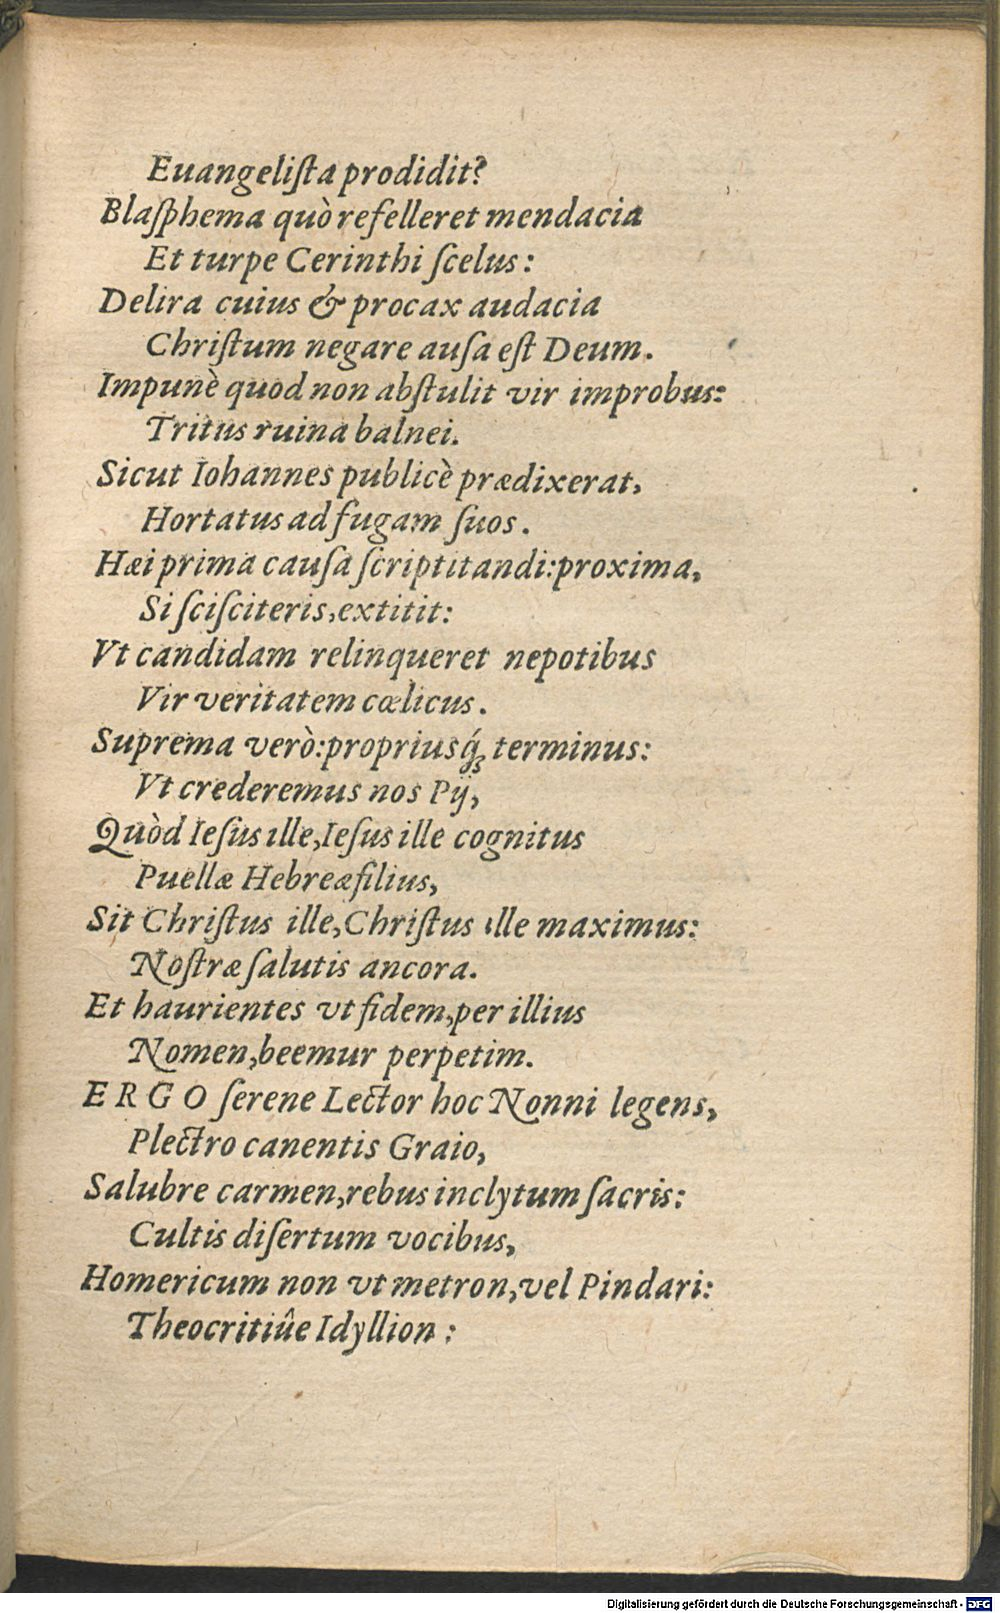 Euangeliſta prodidit?
Blaſphema quò refelleret mendacia
Et turpe Cerinthi ſcelus:
Delira cuius & procax audacia
Chriſtum negare auſa eſt Deum.
Impunè quod non abſtulit vir improbus:
Tritus ruina balnei.
Sicut Iohannes publicè prædixerat,
Hortatus ad fugam ſuos.
Hæi prima cauſa ſcriptitandi: proxima,
Si ſciſciteris, extitit:
Vt candidam relinqueret nepotibus
Vir veritatem cœlicus.
Suprema verò: propriusq́ꝫ terminus:
Vt crederemus nos Pij,
Quòd Ieſus ille, Ieſus ille cognitus
Puellæ Hebreæ filius,
Sit Chriſtus ille, Chriſtus ille maximus:
Noſtræ ſalutis ancora.
Et haurientes vt fidem, per illius
Nomen, beemur perpetim.
ERGO ſerene Lector hoc Nonni legens,
Plectro canentis Graio,
Salubre carmen, rebus inclytum ſacris:
Cultis diſertum vocibus,
Homericum non vt metron, vel Pindari:
Theocritiûe Idyllion:
Digitalisierung gefördert durch die Deutsche Forschungsgemeinschaft - DFG